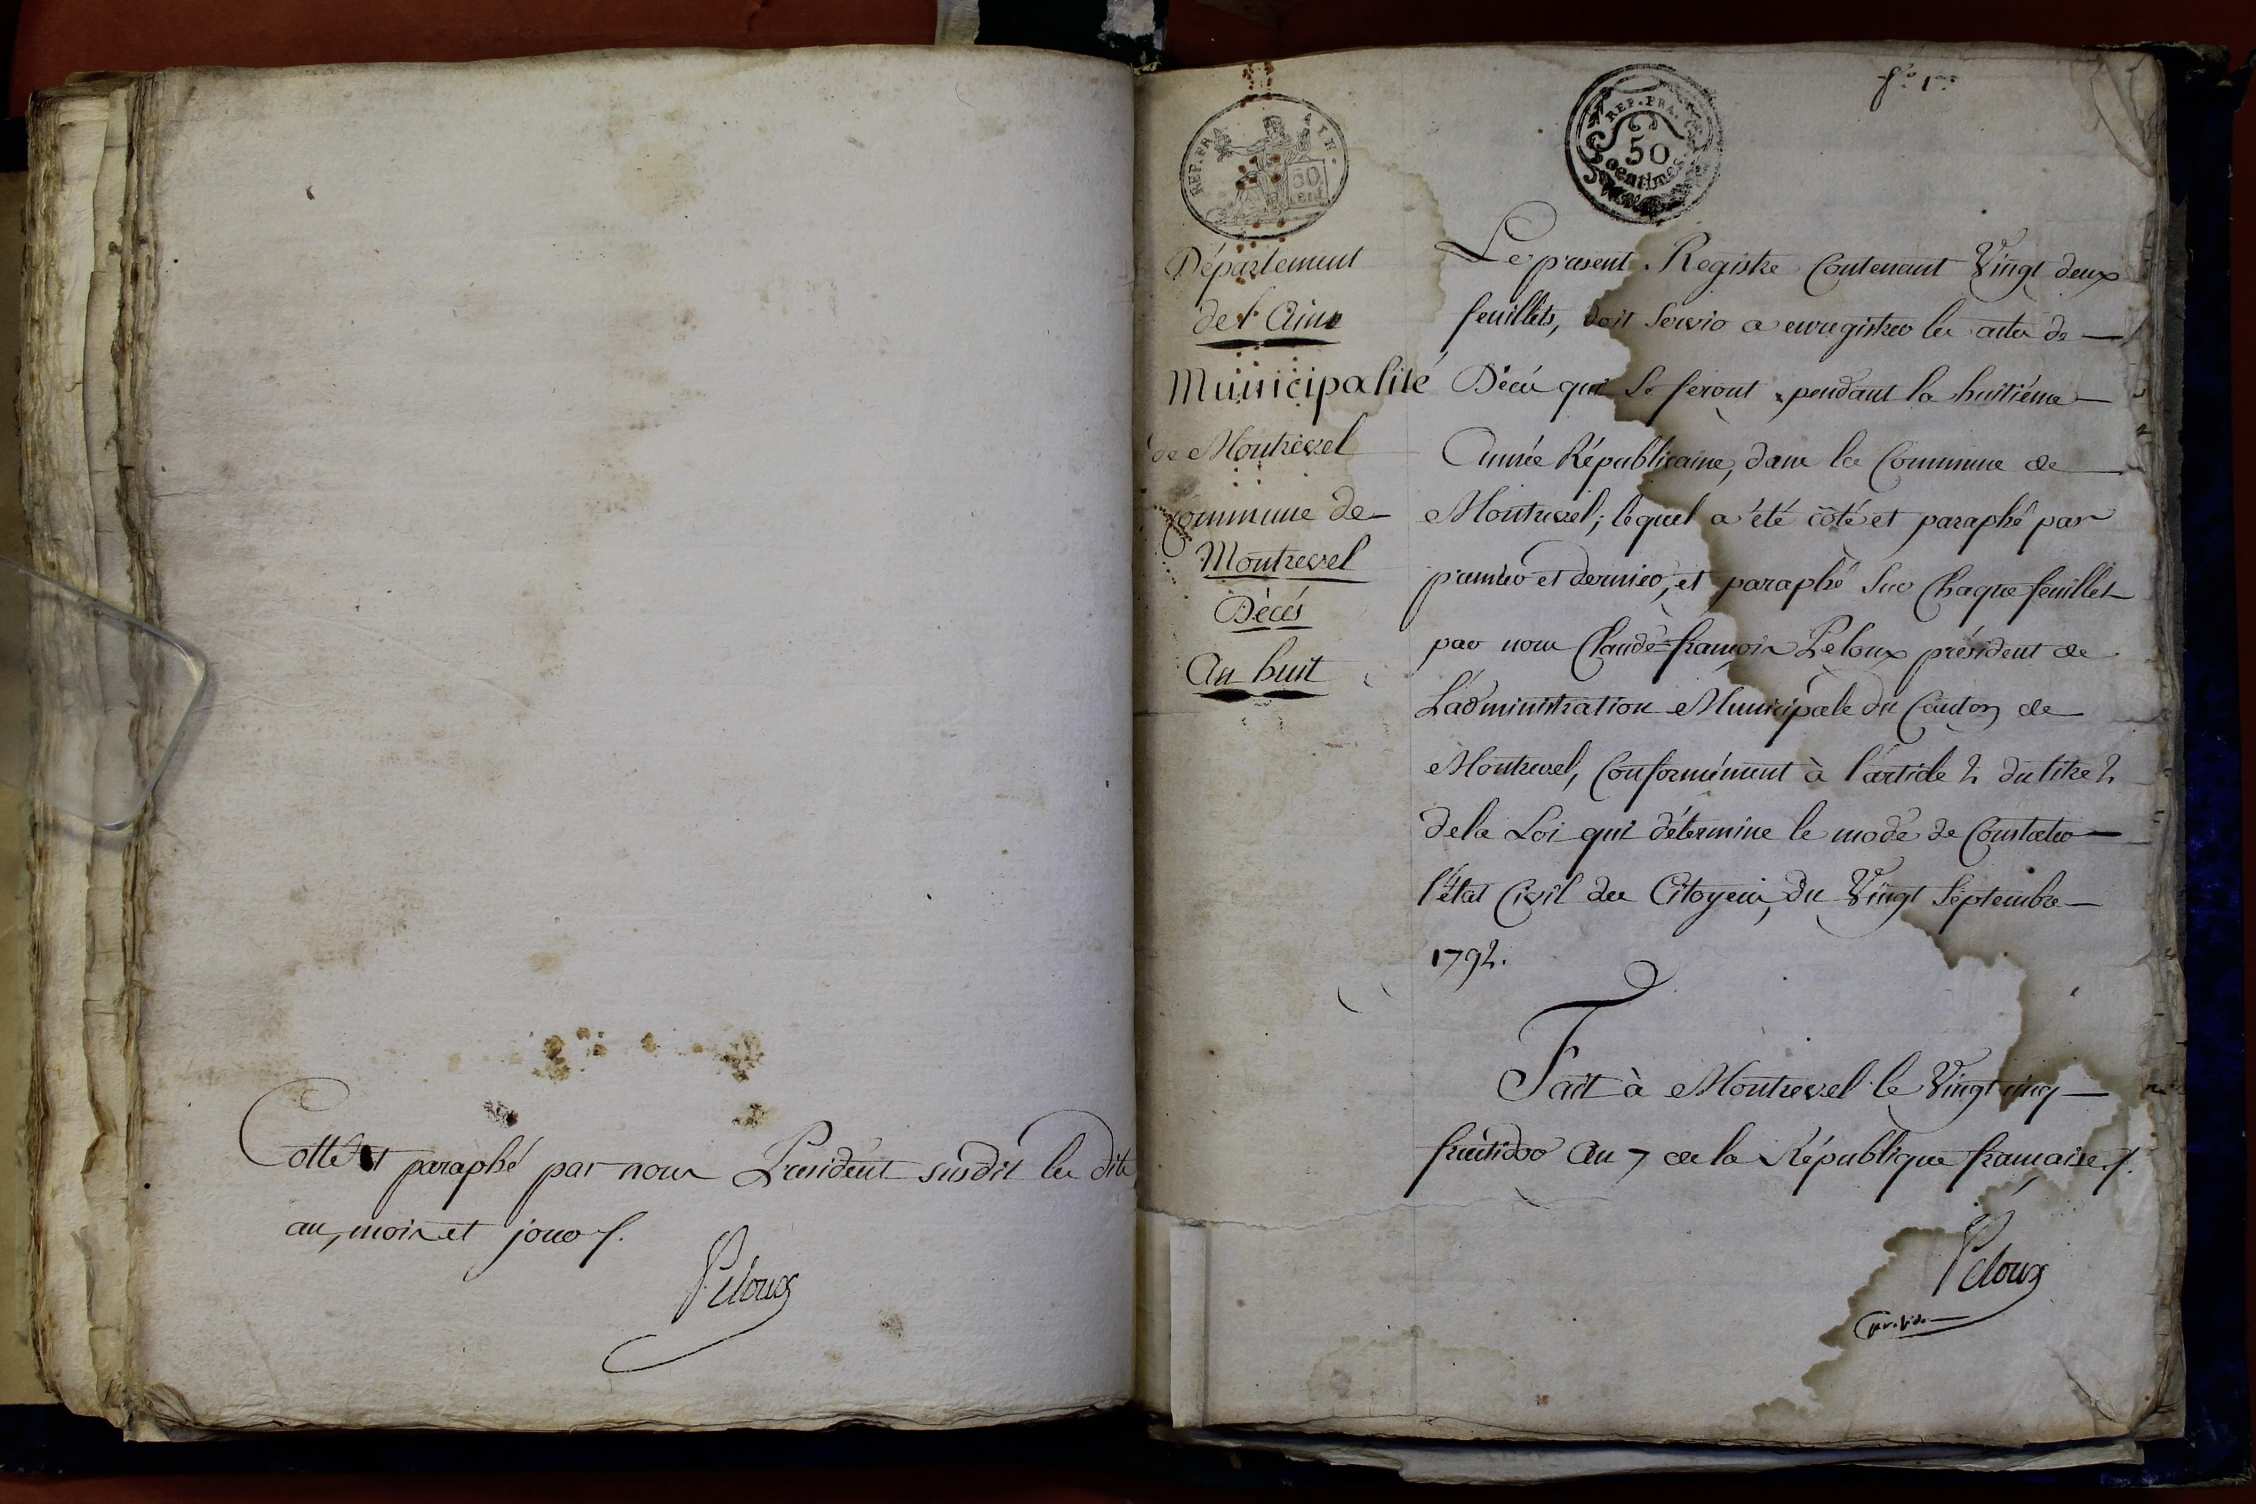 Cotté et paraphé par nous Président susdit les dits
an, mois et jour /.
Peloux
fo. 1er.
REP. FRA
50
cent
REP. FRA.
50
centimes
Département
de l'Ain
Municipalité
de Montrevel
Commune de
Montrevel
Décés
An huit
Le présent Registre Contenant Vingt deux
feuillets, doit Servir a enregistrer les actes de
Décés qui Se feront pendant la huitiéme
Année Républicaine, dans la Commune de
Montrevel; lequel a été côté et paraphé par
premier et dernier, et paraphé Sur Chaque feuillet
par nous Claude=françois Peloux président de
L'administration Municipale du Canton de
Montrevel, Conformément à l'article 2 du titre 2
de la Loi qui détermine le mode de Constater
l'état Civil des Citoyens, du Vingt Septembre
1792.
Fait à Montrevel le Vingt cinq
fructidor An 7 de la République française /.
Peloux